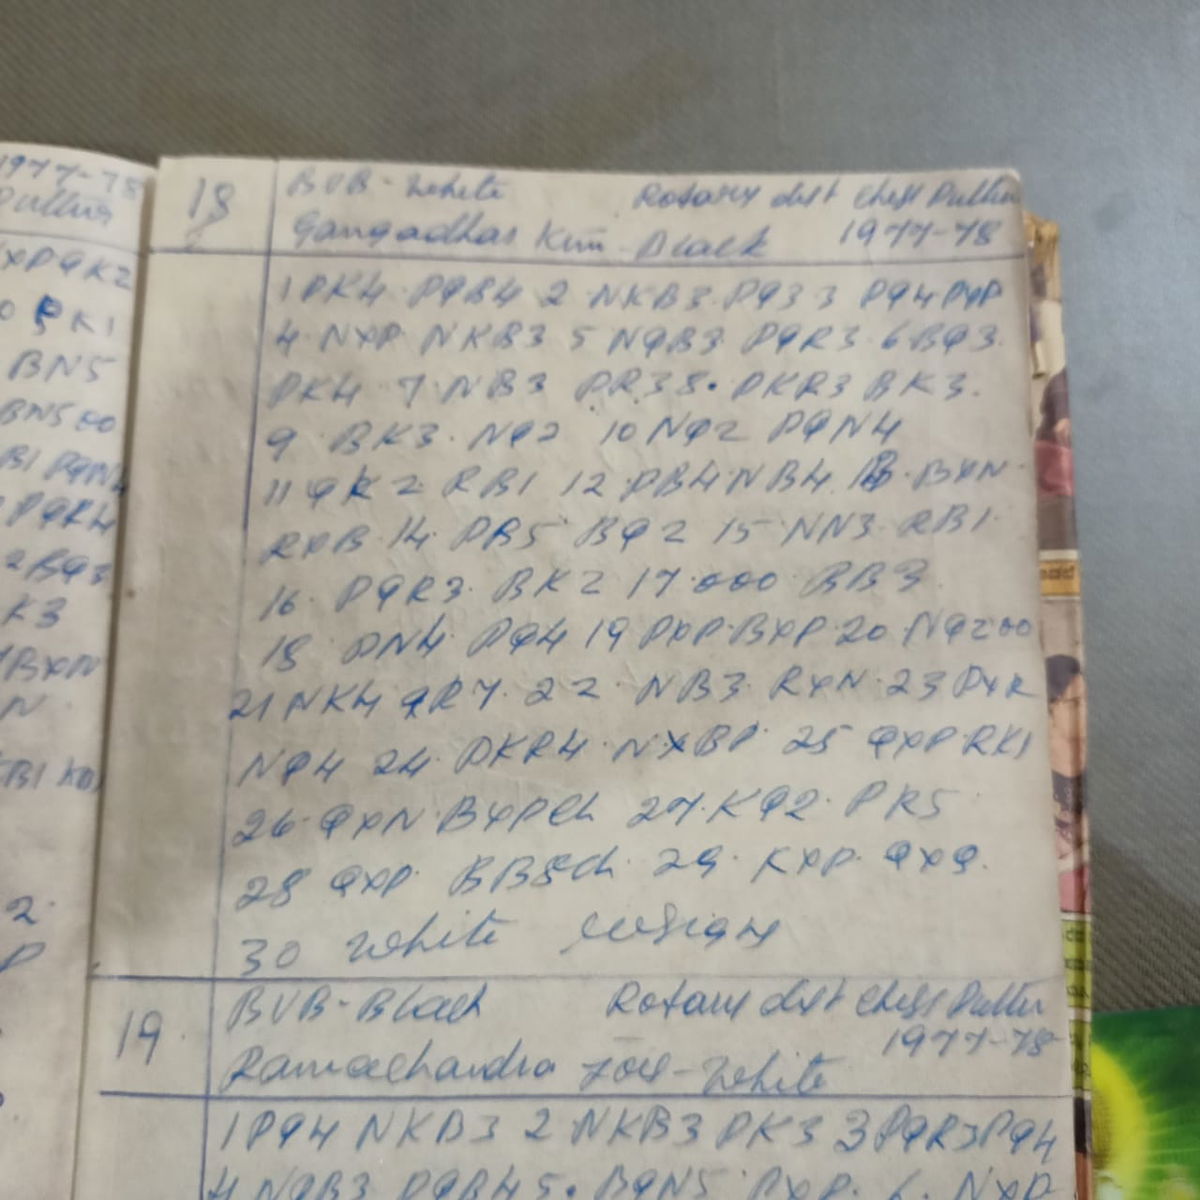 1977-78
Puttur
XPQK2
0 RK1
BN5
BN5 00
B1 PQN4
PQR4
2 BQ3
K3
BXN
N
B1
2
P
18 BVB - White Rotary dist Chess Puttur
Gangadhar Kini - Black 1977-78
1 PK4 PQB4 2 NKB3 PQ3 3 PQ4 PXP
4 NXP NKB3 5 NQB3 PQR3 6 BQ3
PK4 7 NB3 PR3 8. PKR3 BK3.
9 BK3 NQ2 10 NQ2 PQN4
11 QK2 RB1 12 PB4 NB4 13 BXN
RXB 14 PB5 BQ2 15 NN3 RB1
16 PQR3 BK2 17 000 BB3
18 PN4 PQ4 19 PXP BXP 20 NQ2 00
21 NK4 QR4 22 NB3 RXN 23 PXR
NQ4 24 PKR4 NXBP 25 QXP RK1
26 QXN BXPch 27 KQ2 PR5
28 QXP BB5ch 29 KXP QXQ.
30 White resign
19 BVB - Black Rotary dist Chess Puttur
1977-78
Ramachandra - White
1 PQ4 NKB3 2 NKB3 PK3 3 PQR3 PQ4
4 NQB3 PQB4 5. BQN5 PXP 6. NXP